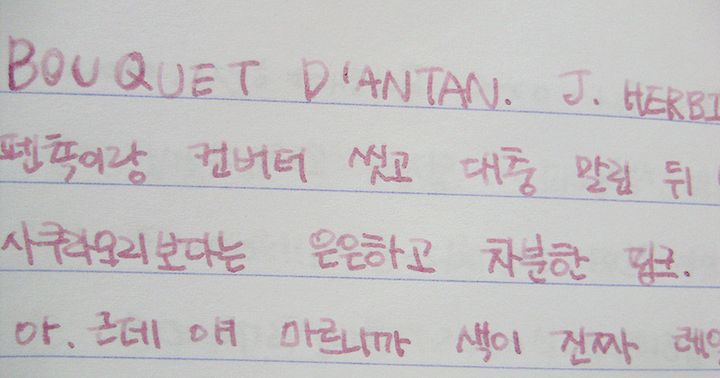 BOUQUET D'ANTAN. J. HERBI
펜촉이랑 컨버터 씻고 대충 말린 뒤
사쿠라모리보다는 은은하고 차분한 핑크.
아. 근데 얘 마르니까 색이 진짜